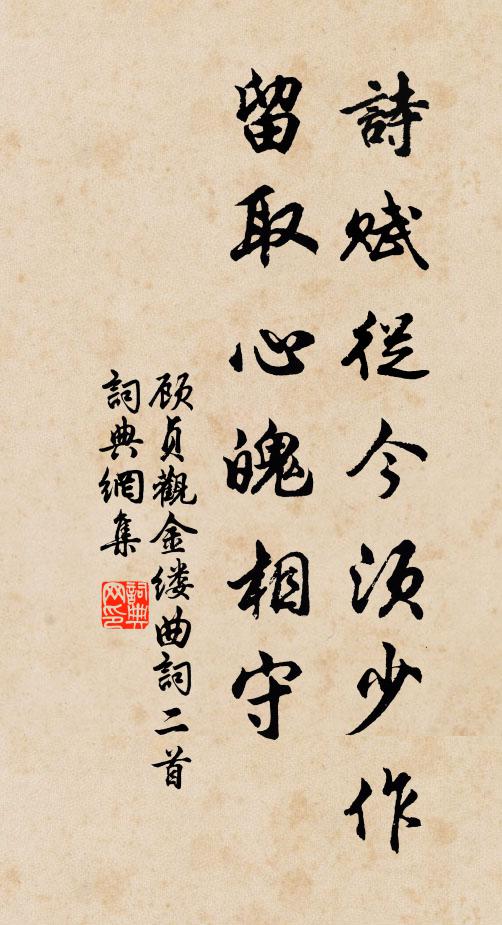 詩賦從今須少作
留取心魄相守
顾貞觀金缕曲詞二首
詞典網集
詞典网印